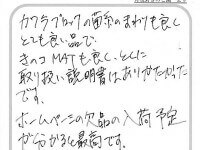 カワラブロックの苗床のまわりも良く
とても良い品で、
きのこMATも良く、とくに
取り扱い説明書はありがたかった
です。
ホームページの欠品の入荷予定
が分かると最高です。